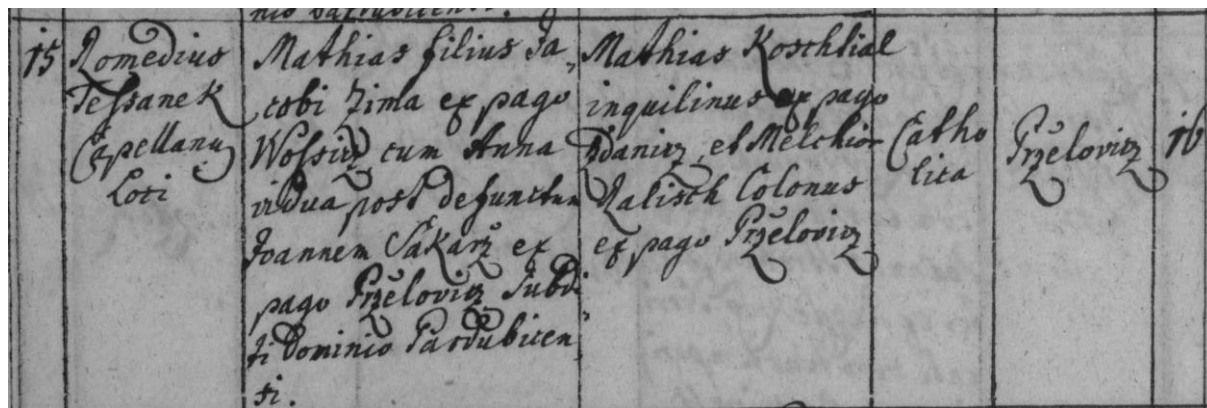 nio Pardubicensi.
15
Romedius
Tessanek
Capellanus
Loci
Mathias filius Ja,
cobi Zima ex pago
Wossicz cum Anna
vidua post defunctum
Joannem Sakarž ex
pago Przelovicz Subdi,
ti Dominio Pardubicen,
si.
Mathias Koschtial
inquilinus ex pago
Zdanicz et Melchior
Ralisch Colonus
ex pago Przelovicz
Catho
lica
Przelovicz
16